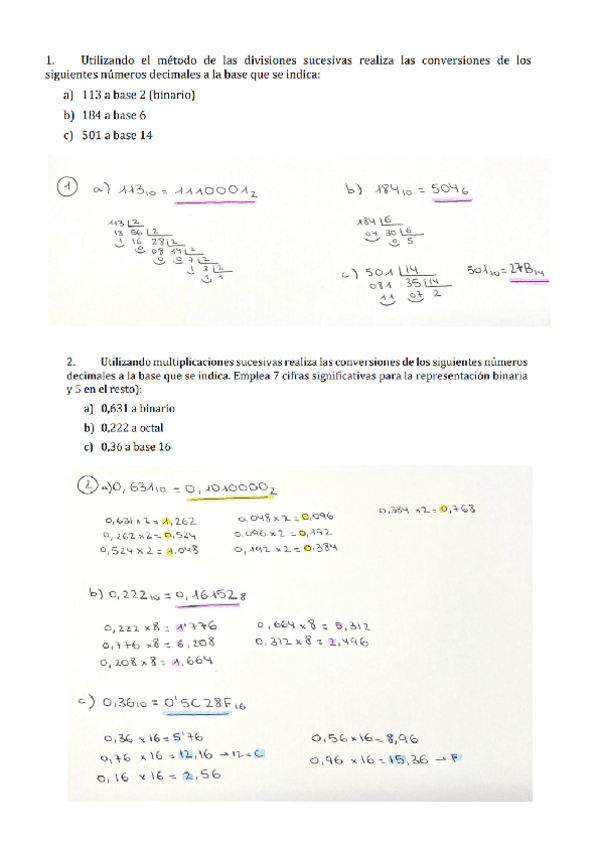 1. Utilizando el método de las divisiones sucesivas realiza las conversiones de los
siguientes números decimales a la base que se indica:
a) 113 a base 2 (binario)
b) 184 a base 6
c) 501 a base 14
1 a) 113₁₀ = 1110001₂
113 |2
13 56 |2
1 16 28 |2
0 08 14 |2
0 0 7 |2
1 3 |2
1 1
b) 184₁₀ = 504₆
184 |6
04 30 |6
0 5
c) 501 |14
081 35 |14
11 07 2
501₁₀ = 27B₁₄
2. Utilizando multiplicaciones sucesivas realiza las conversiones de los siguientes números
decimales a la base que se indica. Emplea 7 cifras significativas para la representación binaria
y 5 en el resto):
a) 0,631 a binario
b) 0,222 a octal
c) 0,36 a base 16
2 a) 0,631₁₀ = 0,1010000₂
0,631 x 2 = 1,262
0,262 x 2 = 0,524
0,524 x 2 = 1.048
0,048 x 2 = 0,096
0,096 x 2 = 0,192
0,192 x 2 = 0,384
0,384 x 2 = 0,768
b) 0,222₁₀ = 0,16152₈
0,222 x 8 = 1'776
0,776 x 8 = 6,208
0,208 x 8 = 1,664
0,664 x 8 = 5,312
0,312 x 8 = 2,496
c) 0,36₁₀ = 0'5C28F₁₆
0,36 x 16 = 5'76
0,76 x 16 = 12,16 → 12 = C
0,16 x 16 = 2,56
0,56 x 16 = 8,96
0,96 x 16 = 15,36 → F